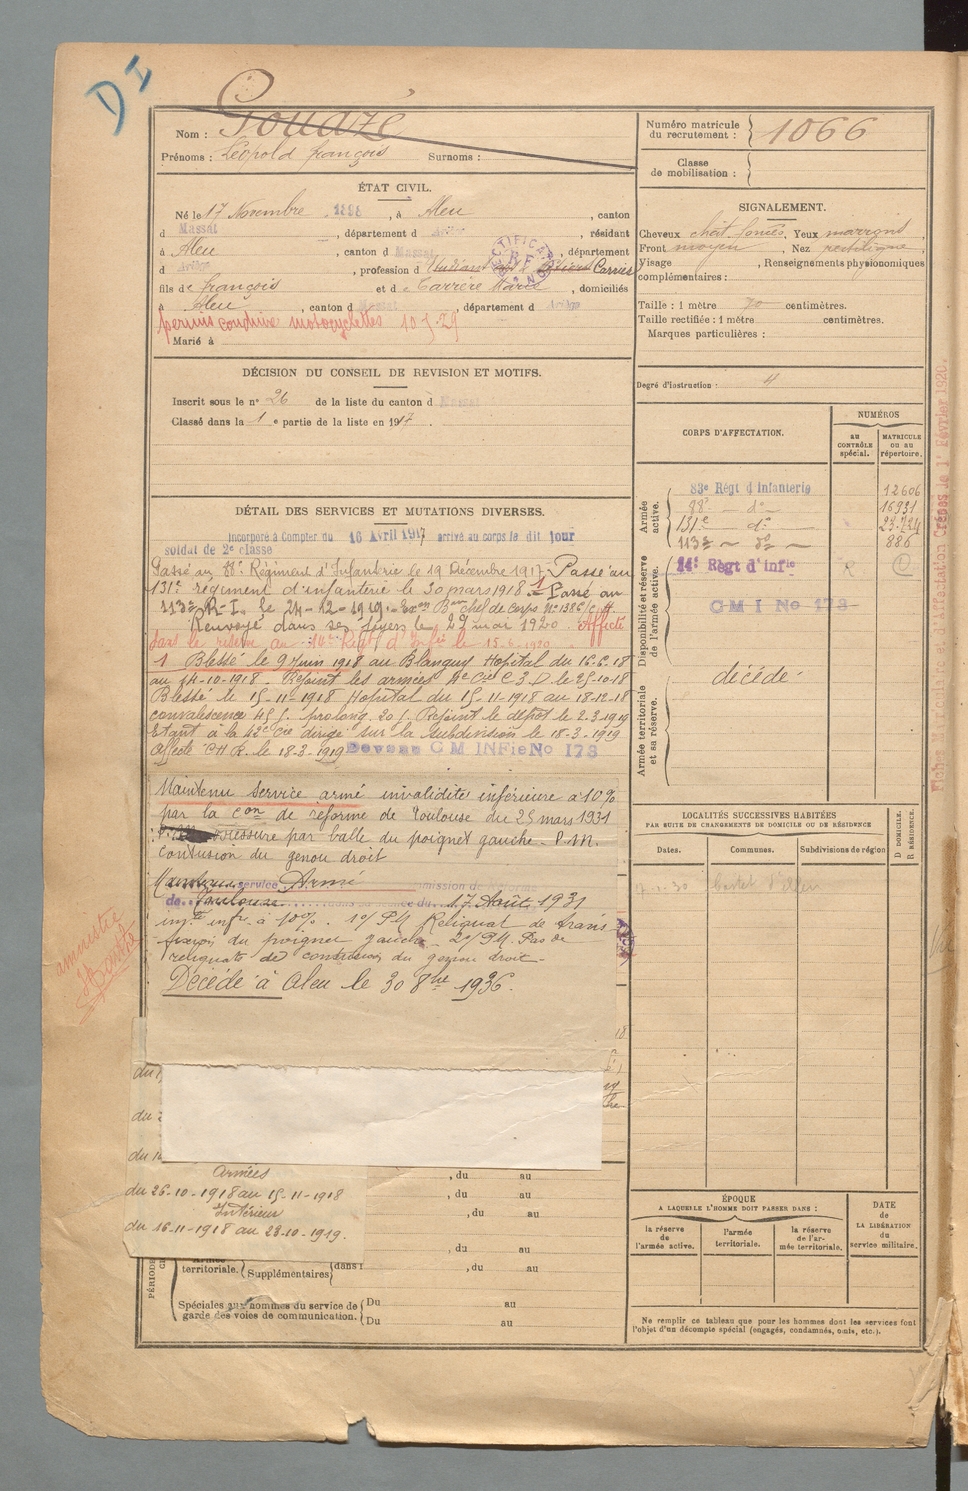 D I
Nom : Gouazé
Prénoms : Léopold françois Surnoms :
Numéro matricule du recrutement : 1066
Classe de mobilisation :
ÉTAT CIVIL.
Né le 17 Novembre 1898, à Aleu, canton
d Massat, département d Ariège, résidant
à Aleu, canton d Massat, département
d Ariège, profession d Carrier
fils de françois et de Carrère Marie, domiciliés
à Aleu, canton d Massat, département d Ariège
permis conduire motocyclettes 10-5-29
Marié à
SIGNALEMENT.
Cheveux chât. foncés, Yeux marrons
Front moyen, Nez rectiligne
Visage , Renseignements physionomiques
complémentaires :
Taille : 1 mètre 70 centimètres.
Taille rectifiée : 1 mètre centimètres.
Marques particulières :
Degré d'instruction : 4
DÉCISION DU CONSEIL DE REVISION ET MOTIFS.
Inscrit sous le n° 26 de la liste du canton d Massat
Classé dans la 1 e partie de la liste en 1917.
CORPS D'AFFECTATION.
NUMÉROS
AU CONTRÔLE spécial.
MATRICULE ou au répertoire.
Armée active.
83e Régt d Infanterie 12606
88e - do - 16931
131e do 23.724
113e do 886
Disponibilité et réserve de l'armée active.
14e Régt d'Infie R
G M I No 173
Armée territoriale et sa réserve.
décédé
DÉTAIL DES SERVICES ET MUTATIONS DIVERSES.
Incorporé à Compter du 16 Avril 1917 arrivé au corps le dit jour
soldat de 2e classe
Passé au 88e Régiment d'Infanterie le 19 Décembre 1917. Passé au
131e régiment d'infanterie le 30 mars 1918. 1 Passé au
113e R-I. le 24-12-1919.
Renvoyé dans ses foyers le 29 mai 1920. Affecté
dans la réserve au 14e Régt d'Infie le 15-6-1920
1 Blessé le 9 Juin 1918 au Blanguy Hopital du 16.6.18
au 14-10-1918. Rejoint les armées 9e Cie C 3 D le 25-10-18
Blessé le 15-11-1918 Hopital du 15-11-1918 au 18-12-18
convalescence 45 j. prolong. 20 j. Rejoint le dépôt le 2.3.1919
Etant à la 42e Cie dirigé sur la subdivision le 18-3-1919
Affecté CHR. le 18-3-1919 Devenu G M INFie No 173
Maintenu service armé invalidité inférieure à 10%
par la Con de réforme de Toulouse du 25 mars 1931
blessure par balle du poignet gauche - P.M.
contusion du genou droit
Maintenu service Armé commission de réforme
de Toulouse séance du 17 Août 1931
à 10%. 1°/ PM Reliquat de
du poignet gauche - 2°/ PM Pas de
reliquats de contusion du genou droit -
Décédé à Aleu le 30 8bre 1936.
amnistié
Fiche Matricule et d'Affectation Créées le 1er Février 1920.
LOCALITÉS SUCCESSIVES HABITÉES
PAR SUITE DE CHANGEMENTS DE DOMICILE OU DE RÉSIDENCE
D DOMICILE.
R RÉSIDENCE.
Dates. Communes. Subdivisions de région
Castet d'Aleu
Armées
du 26-10-1918 au 15-11-1918
Intérieur
du 16-11-1918 au 23-10-1919.
, du au
, du au
, du au
, du au
territoriale. Supplémentaires dans l , du au
Spéciales aux hommes du service de garde des voies de communication. Du au
Du au
ÉPOQUE
A LAQUELLE L'HOMME DOIT PASSER DANS :
DATE de LA LIBÉRATION du service militaire.
la réserve de l'armée active.
l'armée territoriale.
la réserve de l'armée territoriale.
Ne remplir ce tableau que pour les hommes dont les services font
l'objet d'un décompte spécial (engagés, condamnés, omis, etc.).